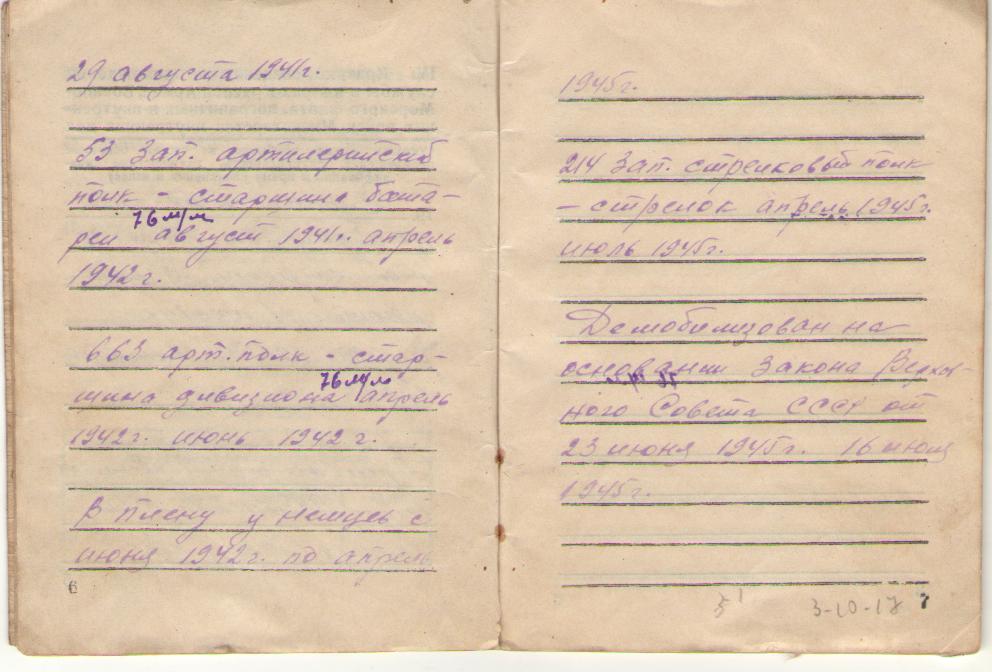 29 августа 1941г.
53 Зап. артилерийский
полк - старшина бата-
76 м/м
реи август 1941г. апрель
1942 г.
663 арт. полк - стар-
76 м/м
шина дивизиона апрель
1942г. июнь 1942 г.
В плену у немцев с
июня 1942г. по апрель
6
1945г.
214 Зап. стрелковый полк
- стрелок апрель 1945г.
июль 1945г.
Демобилизован на
основании Закона Верхов-
ного Совета СССР от
23 июня 1945г. 16 июля
1945г.
3-10-17 7